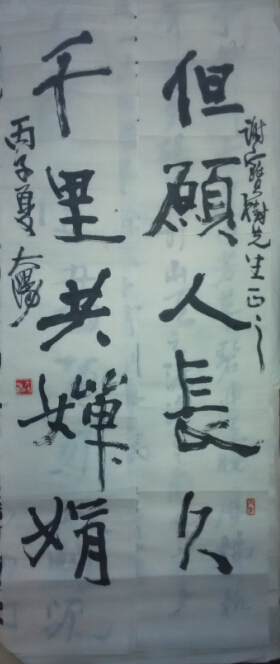 谢寳樹先生正之
但願人長久
千里共嬋娟
丙子夏 太陽